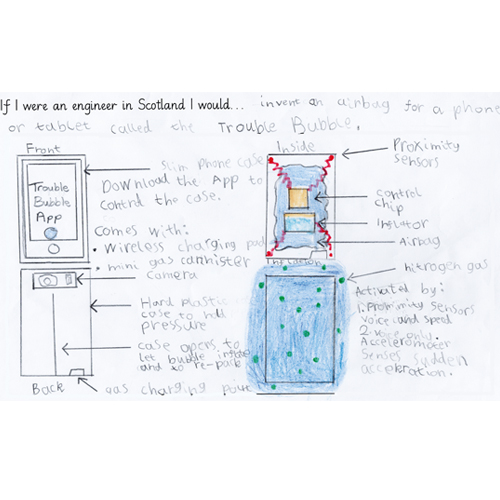 If I were an engineer in Scotland I would... invent an airbag for a phone
or tablet called the Trouble Bubble.
Front
Slim phone case
Download the App to
control the case.
Trouble
Bubble
App
Comes with:
• Wireless charging pad
• mini gas cannister
camera
Hard plastic
case to hold
pressure
case opens to
let bubble inflate
and to re-pack
Back
gas charging point
Inside
Proximity
sensors
control
chip
Inflator
Airbag
Inflation
nitrogen gas
Activated by:
1. Proximity sensors
voice and speed
2. voice only.
Accelerometer
senses sudden
acceleration.